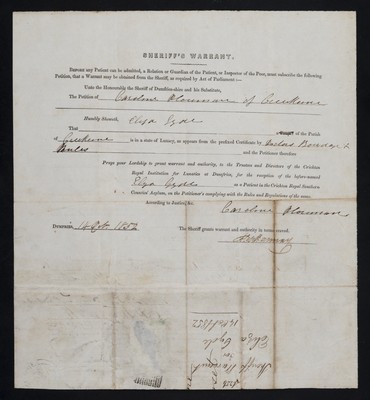 SHERIFF'S WARRANT.
BEFORE any Patient can be admitted, a Relation or Guardian of the Patient, or Inspector of the Poor, must subscribe the following
Petition, that a Warrant may be obtained from the Sheriff, as required by Act of Parliament:—
Unto the Honourable the Sheriff of Dumfries-shire and his Substitute,
The Petition of Caroline of
Humbly Sheweth, Eliza
That of the Parish
of is in a state of Lunacy, as appears from the prefixed Certificate by
and the Petitioner therefore
Prays your Lordship to grant warrant and authority, to the Trustees and Directors of the Crichton
Royal Institution for Lunatics at Dumfries, for the reception of the before-named
Eliza as a Patient in the Crichton Royal Southern
Counties' Asylum, on the Petitioner's complying with the Rules and Regulations of the same.
According to Justice, &c.
Caroline
DUMFRIES, 14 Feb. 1852 The Sheriff grants warrant and authority in terms craved.
Sheriff's Warrant
for
Eliza
14 Feb 1852